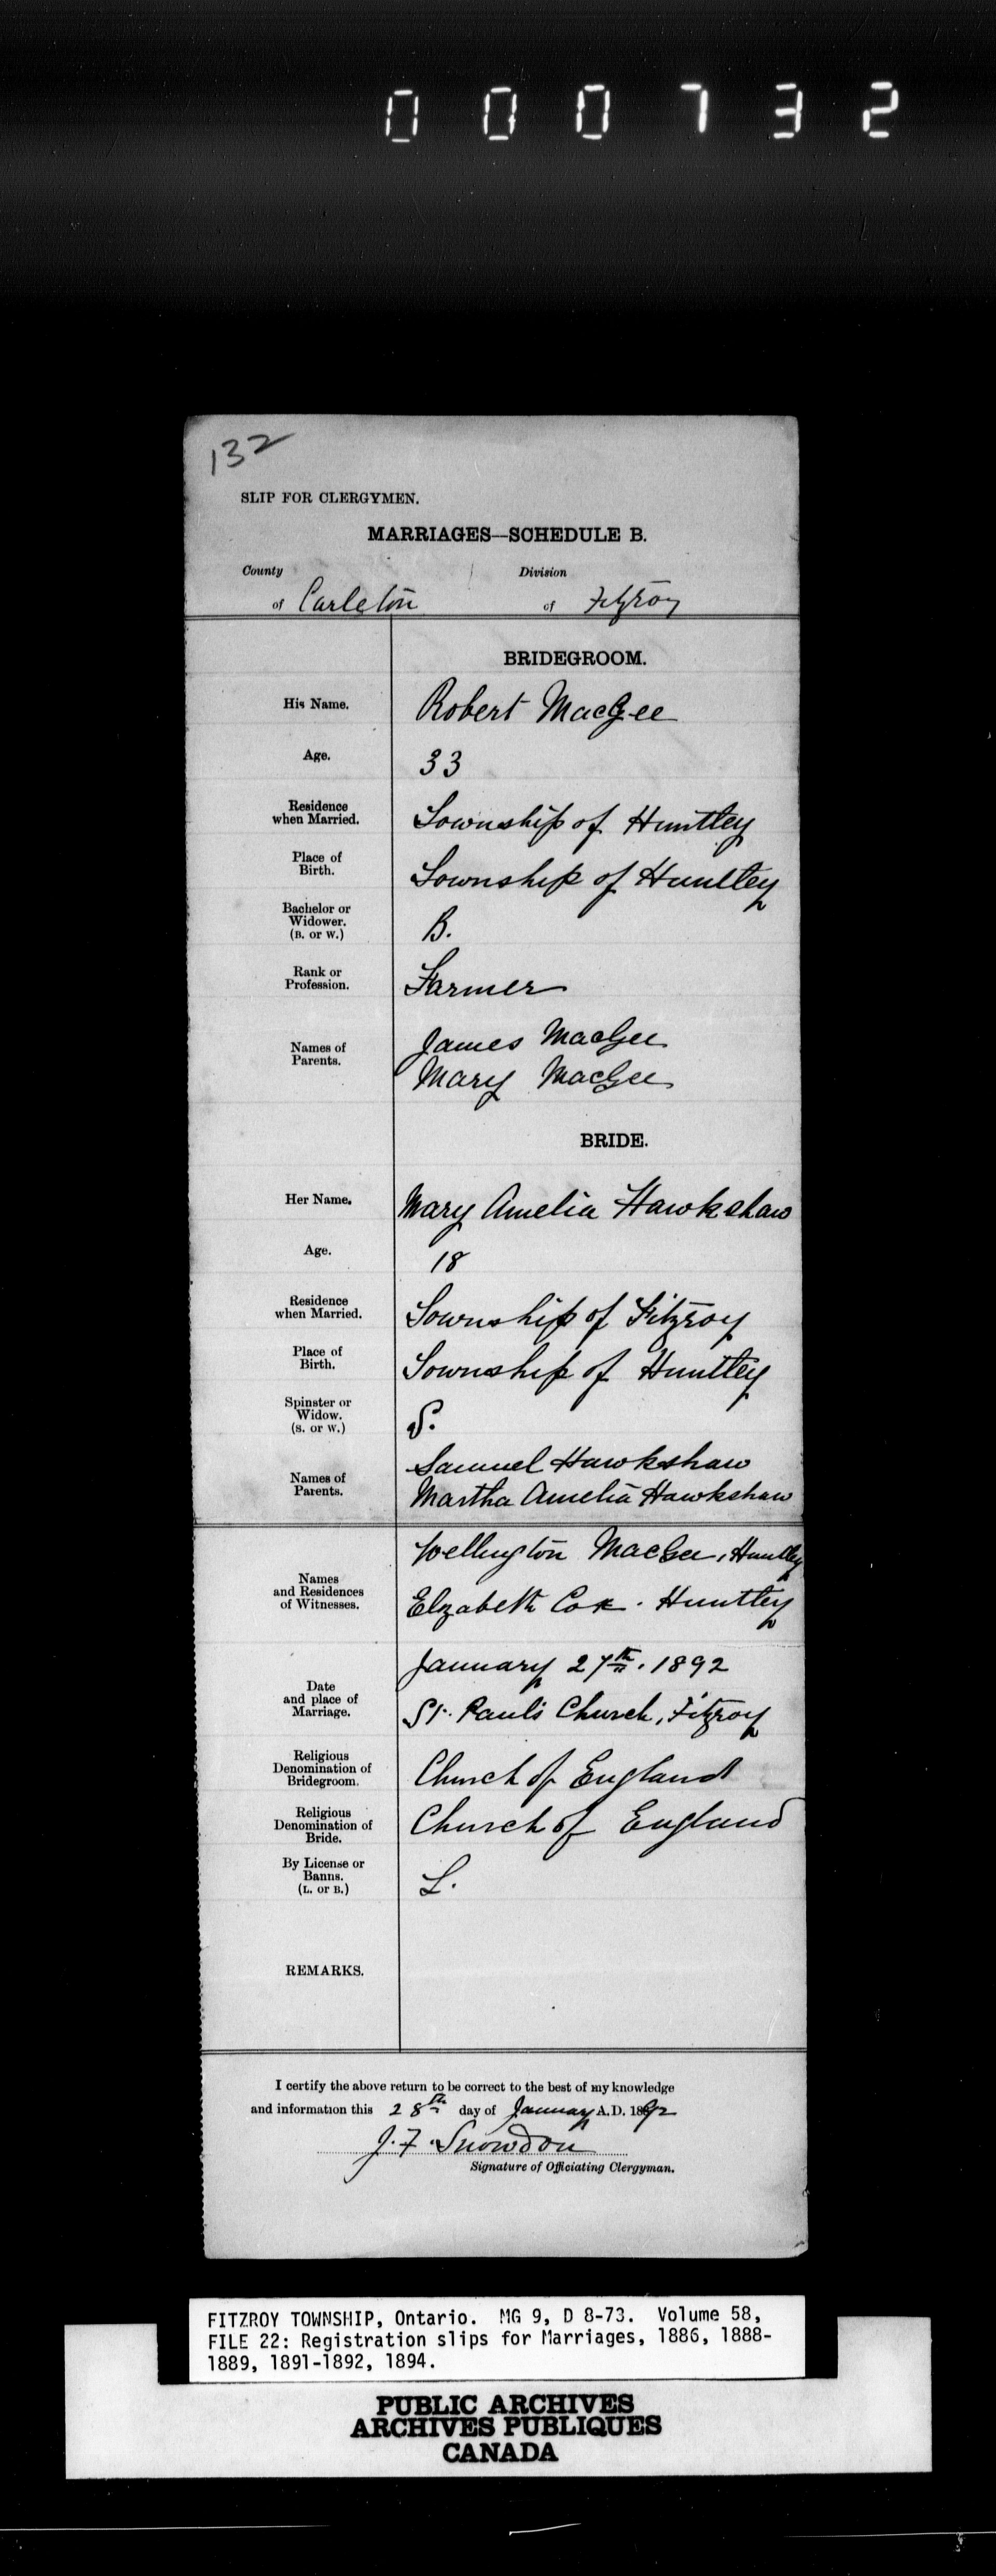 000732
132
SLIP FOR CLERGYMEN.
MARRIAGES—SCHEDULE B.
County Division
of Carleton of Fitzroy
BRIDEGROOM.
His Name. Robert MacGee
Age. 33
Residence
when Married. Township of Huntley
Place of
Birth. Township of Huntley
Bachelor or
Widower.
(B. or W.) B.
Rank or
Profession. Farmer
Names of
Parents. James MacGee
Mary MacGee
BRIDE.
Her Name. Mary Amelia Hawkshaw
Age. 18
Residence
when Married. Township of Fitzroy
Place of
Birth. Township of Huntley
Spinster or
Widow.
(S. or W.) S.
Names of
Parents. Samuel Hawkshaw
Martha Amelia Hawkshaw
Names
and Residences
of Witnesses. Wellington MacGee, Huntley
Elizabeth Cox. Huntley
Date
and place of
Marriage. January 27th. 1892
St. Paul's Church, Fitzroy
Religious
Denomination of
Bridegroom. Church of England
Religious
Denomination of
Bride. Church of England
By License or
Banns.
(L. or B.) L.
REMARKS.
I certify the above return to be correct to the best of my knowledge
and information this 28th day of January A.D. 1892
J. F. Snowdon
Signature of Officiating Clergyman.
FITZROY TOWNSHIP, Ontario. MG 9, D 8-73. Volume 58,
FILE 22: Registration slips for Marriages, 1886, 1888-
1889, 1891-1892, 1894.
PUBLIC ARCHIVES
ARCHIVES PUBLIQUES
CANADA